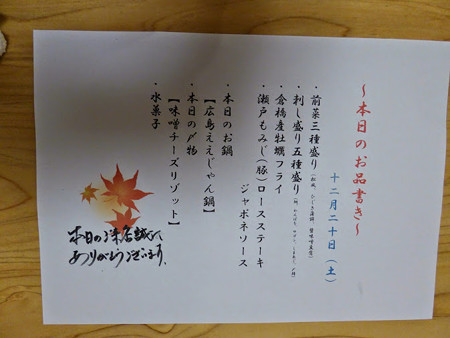 ～本日のお品書き～
十二月二十日（土）
・前菜三種盛り
・刺し盛り五種盛り
・倉橋産牡蠣フライ
・瀬戸もみじ（豚）ロースステーキ
ジャポネソース
・本日のお鍋
【広島ええじゃん鍋】
・本日の〆物
【味噌チーズリゾット】
・水菓子
本日のご来店誠に
ありがとうございます。